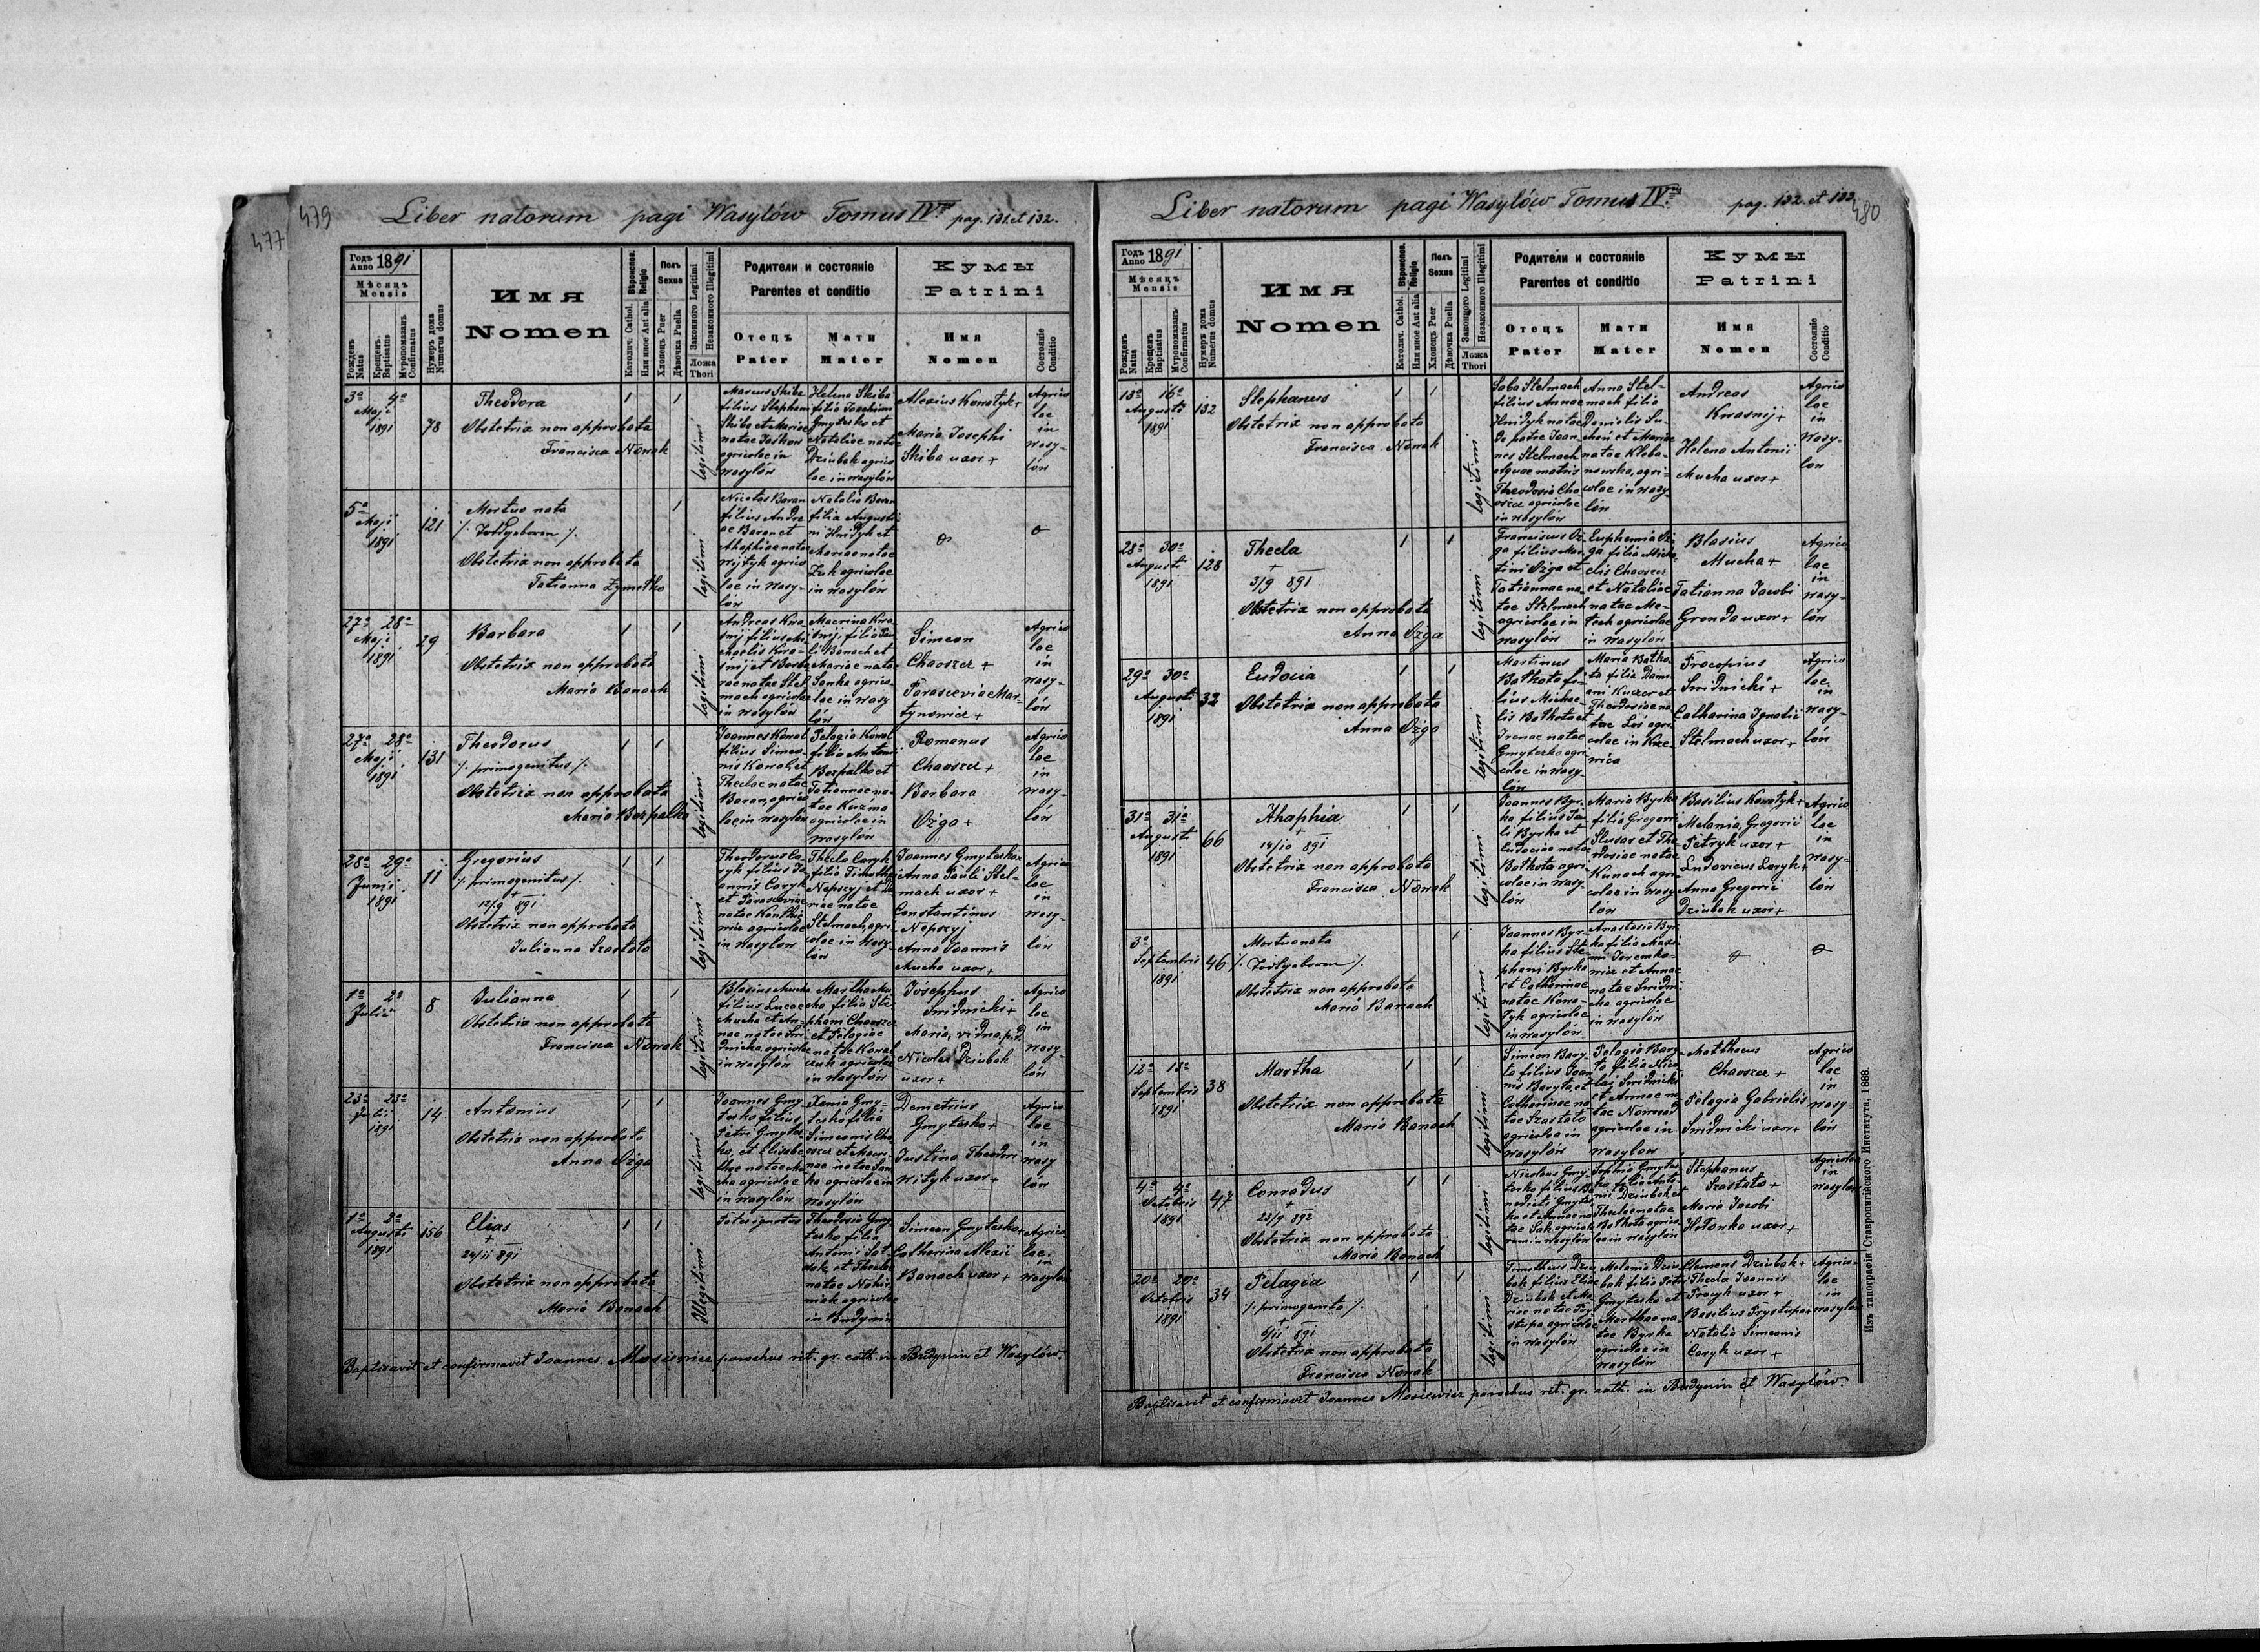 479
477
Liber natorum pagi Wasylów Tomus IV pag. 131 et 132.
Годъ Anno 1891
Мѣсяць Mensis
Рожденъ Natus
Крещенъ Baptisatus
Муропомазанъ Confirmatus
Нумеръ дома Numerus domus
Имя
Nomen
Вѣроиспов. Religio
Католич. Cathol.
Или иное Aut alia
Полъ Sexus
Хлопецъ Puer
Дѣвочка Puella
Законного Legitimi
Незаконного Illegitimi
Ложа Thori
Родители и состояніе
Parentes et conditio
Отецъ
Pater
Мати
Mater
Кумы
Patrini
Имя
Nomen
Состояніе Conditio
3a 4a
Maji
1891
78
Theodora
Obstetrix non approbata
Francisca Nowak
legitimi
Marcus Skiba
filius Stephani
Skiba et Mariae
agricolae in
Wasylów
Helena Skiba
filia Joachimi
Gmyterko et
Nataliae natae
Dziubak agrico
lae in Wasylów
Alexius Konotyk +
Maria Josephi
Skiba uxor +
Agrico
lae
in
Wasy-
lów
5a
Maji
1891
121
Mortua nata
Obstetrix non approbata
Tatianna
legitimi
Nicetas Baran
filius Andre
ae Baran et
Ahaphiae natae
Wijtyk agrico
lae in Wasy-
lów
Natalia Baran
filia Augusti
ni Hnidyk et
Mariae natae
Żuk agricolae
in Wasylów
27a 28a
Maji
1891
29
Barbara
Obstetrix non approbata
Maria Banach
legitimi
Macrina Kwa
snij filia Pau
li Banach et
Mariae nata
lae in Wasy
lów
Simeon
Chaoszcz +
Parascevia Mar-
tynowicz +
Agrico
lae
in
Wasy-
lów
27a 28a
Maji
1891
131
Theodorus
/. primogenitus /.
Obstetrix non approbata
Maria Bezpalko
legitimi
Joannes Kowal
filius Simeo-
nis Kowal et
Theclae natae
Baran, agrico
lae in Wasylów
Pelagia Kowal
filia Antoni
Bezpalko et
Tatiannae na-
tae Kuzma
agricolae in
Wasylów
Romanus
Chaoszcz +
Barbara
Ożga +
Agrico
lae
in
Wasy-
lów
28a 29a
Junii
1891
11
Gregorius
/. primogenitus /.
+
12/9 891
Obstetrix non approbata
Julianna Szastało
legitimi
Theodorus Ca
ryk filius Jo
annis Caryk
et Parasceviae
agricolae
in Wasylów
Thecla Caryk
filia Timothei
Nepszyj et Ma
riae natae
Stelmach, agri
colae in Wasy-
lów
Joannes Gmyterko +
Anna Pauli Stel-
mach uxor +
Constantinus
Nepszyj
Anna Joannis
Mucha uxor +
Agrico
lae
in
Wasy-
lów
1a 2a
Julii
8
Julianna
Obstetrix non approbata
Francisca Nowak
legitimi
Blasius Mucha
filius Lucae
Mucha et An-
nae natae Smi
dnicka, agricolae
in Wasylów
Martha Mu
cha filia Ste
phani Chaoszcz
et Pelagiae
natae Kowal
czuk agricolae
in Wasylów
Josephus
Smidnicki +
Maria, vidua p.d.
Nicolai Dziubak
uxor +
Agrico
lae
in
Wasy-
lów
23a 23a
Julii
1891
14
Antonius
Obstetrix non approbata
Anna Ożga
legitimi
Joannes Gmy-
terko filius
Petri Gmyter
ko, et Elisabe
thae natae Mu
cha agricolae
in Wasylów
Xenia Gmy-
terko filia
Simeonis Cha
oszcz et Macri
nae natae
agricolae in
Wasylów
Demetrius
Gmyterko +
Justina Theodori
Wityk uxor +
Agrico
lae
in
Wasy
lów
1a 2a
Augusti
1891
156
Elias
+
24/11 891
Obstetrix non approbata
Maria Banach
Illegitimi
Pater ignotus
Theodosia Gmy
terko filia
Antoni
et Theclae
natae
agricolae
in Budynin
Simeon Gmyterko +
Catharina Alexii
Banach uxor +
Agrico
lae
in
Wasylów
Baptisavit et confirmavit Joannes Mosiewicz parochus rit. gr. cath. in Budynin et Wasylów.
480
Liber natorum pagi Wasylów Tomus IV pag. 132 et 133
Годъ Anno 1891
Мѣсяць Mensis
Рожденъ Natus
Крещенъ Baptisatus
Муропомазанъ Confirmatus
Нумеръ дома Numerus domus
Имя
Nomen
Вѣроиспов. Religio
Католич. Cathol.
Или иное Aut alia
Полъ Sexus
Хлопецъ Puer
Дѣвочка Puella
Законного Legitimi
Незаконного Illegitimi
Ложа Thori
Родители и состояніе
Parentes et conditio
Отецъ
Pater
Мати
Mater
Кумы
Patrini
Имя
Nomen
Состояніе Conditio
13a 16a
Augusti
1891
132
Stephanus
Obstetrix non approbata
Francisca Nowak
legitimi
Saba Stelmach
filius Annae
Hnidyk natae
de patre Joan
nes Stelmach
aquae matris
Theodosia Cha
oszcz agricolae
in Wasylów
Anna Stel-
mach filia
Danielis
et Mariae
natae Kleba-
nowska, agri-
colae in Wasy-
lów
Andreas
Kwasnij +
Helena Antonii
Mucha uxor +
Agrico
lae
in
Wasy-
lów
28a 30a
Augusti
1891
128
Thecla
+
3/9 891
Obstetrix non approbata
Anna Ożga
legitimi
Franciscus Oż-
ga filius Mar
tini Ożga et
Tatiannae na
tae Stelmach
agricolae in
Wasylów
Euphemia Oż
ga filia Micha
elis Chaoszcz
et Nataliae
natae
agricolae
in Wasylów
Blasius
Mucha +
Tatianna Jacobi
Gronda uxor +
Agrico
lae
in
Wasy-
lów
29a 30a
Augusti
1891
32
Eudocia
Obstetrix non approbata
Anna Ożga
legitimi
Martinus
Bałkota fi-
lius Michae-
lis Bałkota et
Irenae natae
Gmyterko agri
colae in Wasy-
lów
Maria Bałko
ta filia Dami
ani Kuczer et
Theodosiae na
tae Łoś agri
colae in Krze-
wica
Procopius
Smidnicki +
Catharina Ignatii
Stelmach uxor +
Agrico
lae
in
Wasy-
lów
31a 31a
Augusti
1891
66
Ahaphia
+
14/10 891
Obstetrix non approbata
Francisca Nowak
legitimi
Joannes Byr-
ka filius Pau
li Byrka et
Eudociae natae
Bałkota agri
colae in Wasy-
lów
Maria Byrka
filia Gregorii
Slusar et The
odosiae natae
Kunach agri-
colae in Wasy
lów
Basilius Konotyk +
Melania Gregorii
Petryk uxor +
Ludovicus Caryk +
Anna Gregorii
Dziubak uxor +
Agrico
lae
in
Wasy-
lów
3a
Septembris
1891
46
Mortuonata
Obstetrix non approbata
Maria Banach
legitimi
Joannes Byr-
ka filius Ste-
phani Byrka
et Catharinae
natae Kono-
tyk agricolae
in Wasylów
Anastasia Byr
ka filia Maxi
mi Jeremko-
wicz et Annae
natae Smidni
cka agricolae
in Wasylów
12a 13a
Septembris
1891
38
Martha
Obstetrix non approbata
Maria Banach
legitimi
Simeon Bary-
ta filius Joan
nis Baryta, et
Catharinae na
tae Szastało
agricolae in
Wasylów
Pelagia Bary-
ta filia Nico
lai Smidnicki
et Annae na
tae
agricolae in
Wasylów
Matthaeus
Chaoszcz +
Pelagia Gabrielis
Smidnicki uxor +
Agrico
lae
in
Wasy-
lów
4a 4a
Octobris
1891
47
Conradus
+
23/9 892
Obstetrix non approbata
Maria Banach
legitimi
Nicolaus Gmy-
terko filius Be
nedicti Gmyter
ko et Annae na
tae Sak agricola
rum in Wasylów
Sophia Gmyter
ko filia Anto
ni Dziubak et
Theclae natae
Bałkota agrico
lae in Wasylów
Stephanus
Szastało +
Maria Jacobi
uxor +
Agricolae
in
Wasylów
20a 20a
Octobris
1891
34
Pelagia
/. primogenita /.
+
6/11 891
Obstetrix non approbata
Francisca Nowak
legitimi
Timotheus Dziu
bak filius Eliae
Dziubak et Ma-
riae natae Pry
stupa agricolae
in Wasylów
Melania Dziu
bak filia Petri
Gmyterko et
Marthae na-
tae Byrka
agricolae in
Wasylów
Clemens Dziubak +
Thecla Joannis
uxor +
Basilius Prystupa +
Natalia Simeonis
Caryk uxor +
Agrico-
lae
in
Wasylów
Baptisavit et confirmavit Joannes Mosiewicz parochus rit. gr. cath. in Budynin et Wasylów.
Изъ типографіи Ставропигійского Института, 1888.